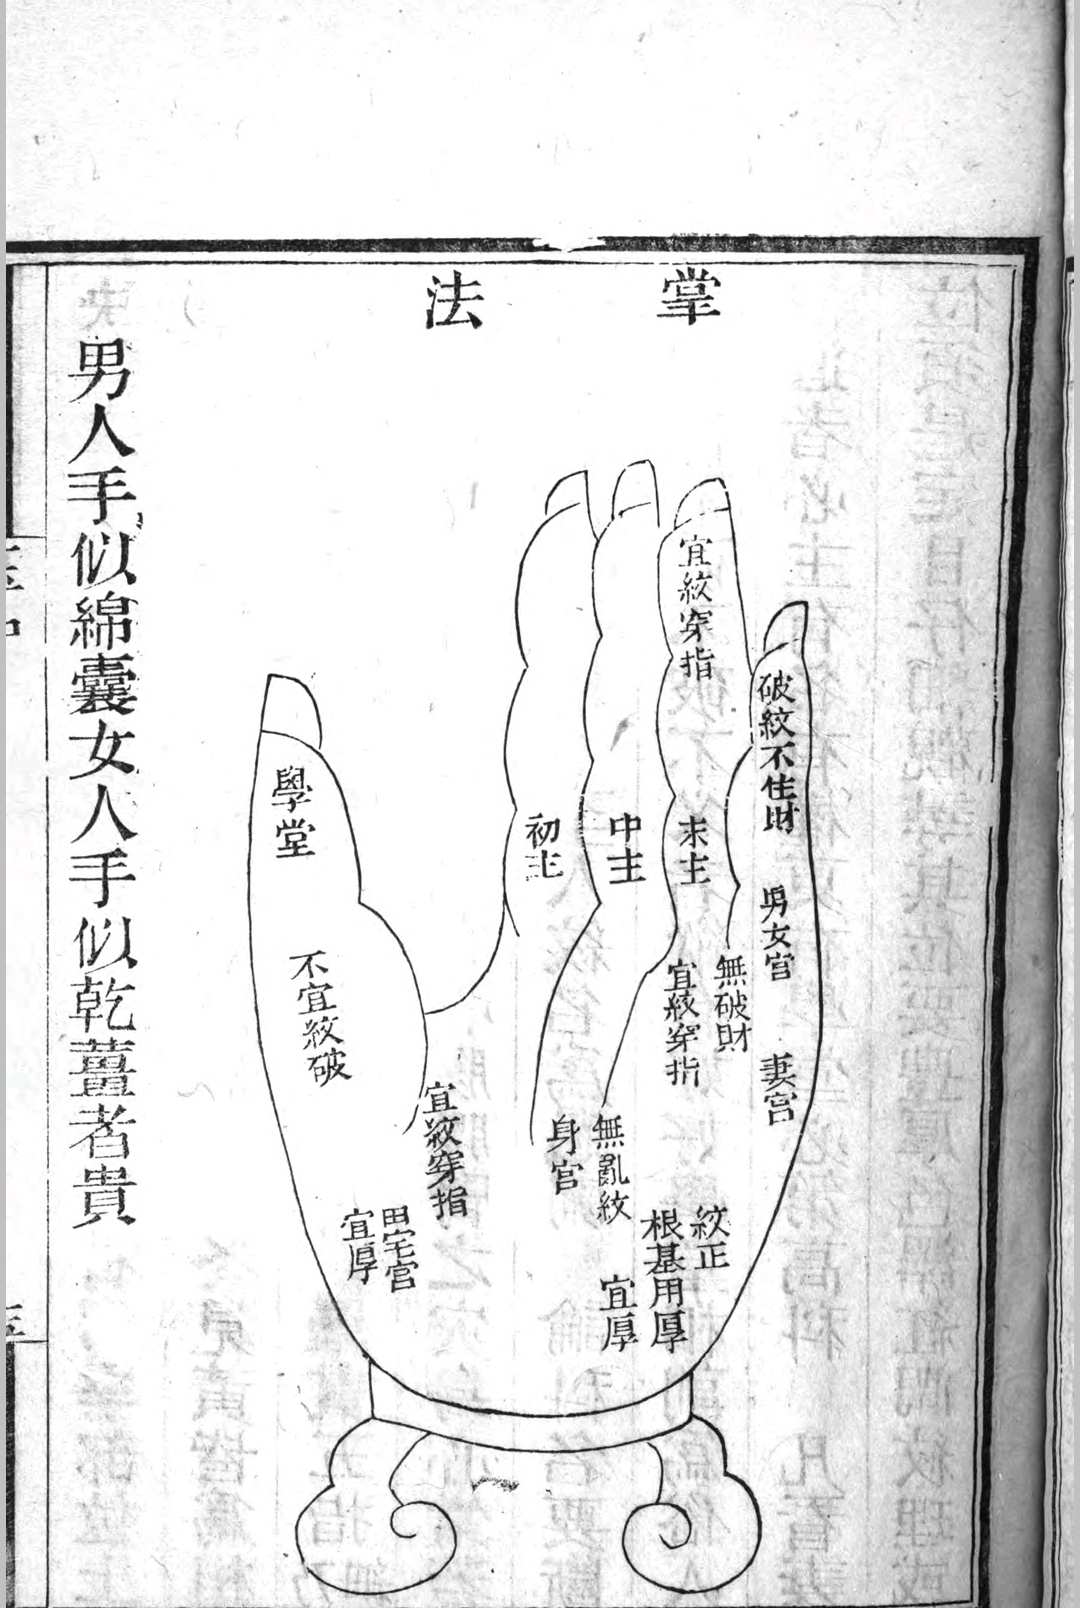 掌法
宜紋穿指
破紋不住財
末主
中主
初主
學堂
男女宮
無破財
宜紋穿指
妻宮
不宜紋破
無亂紋
身宮
宜紋穿指
紋正
根基用厚
宜厚
田宅宮
宜厚
男人手似綿囊女人手似乾薑者貴